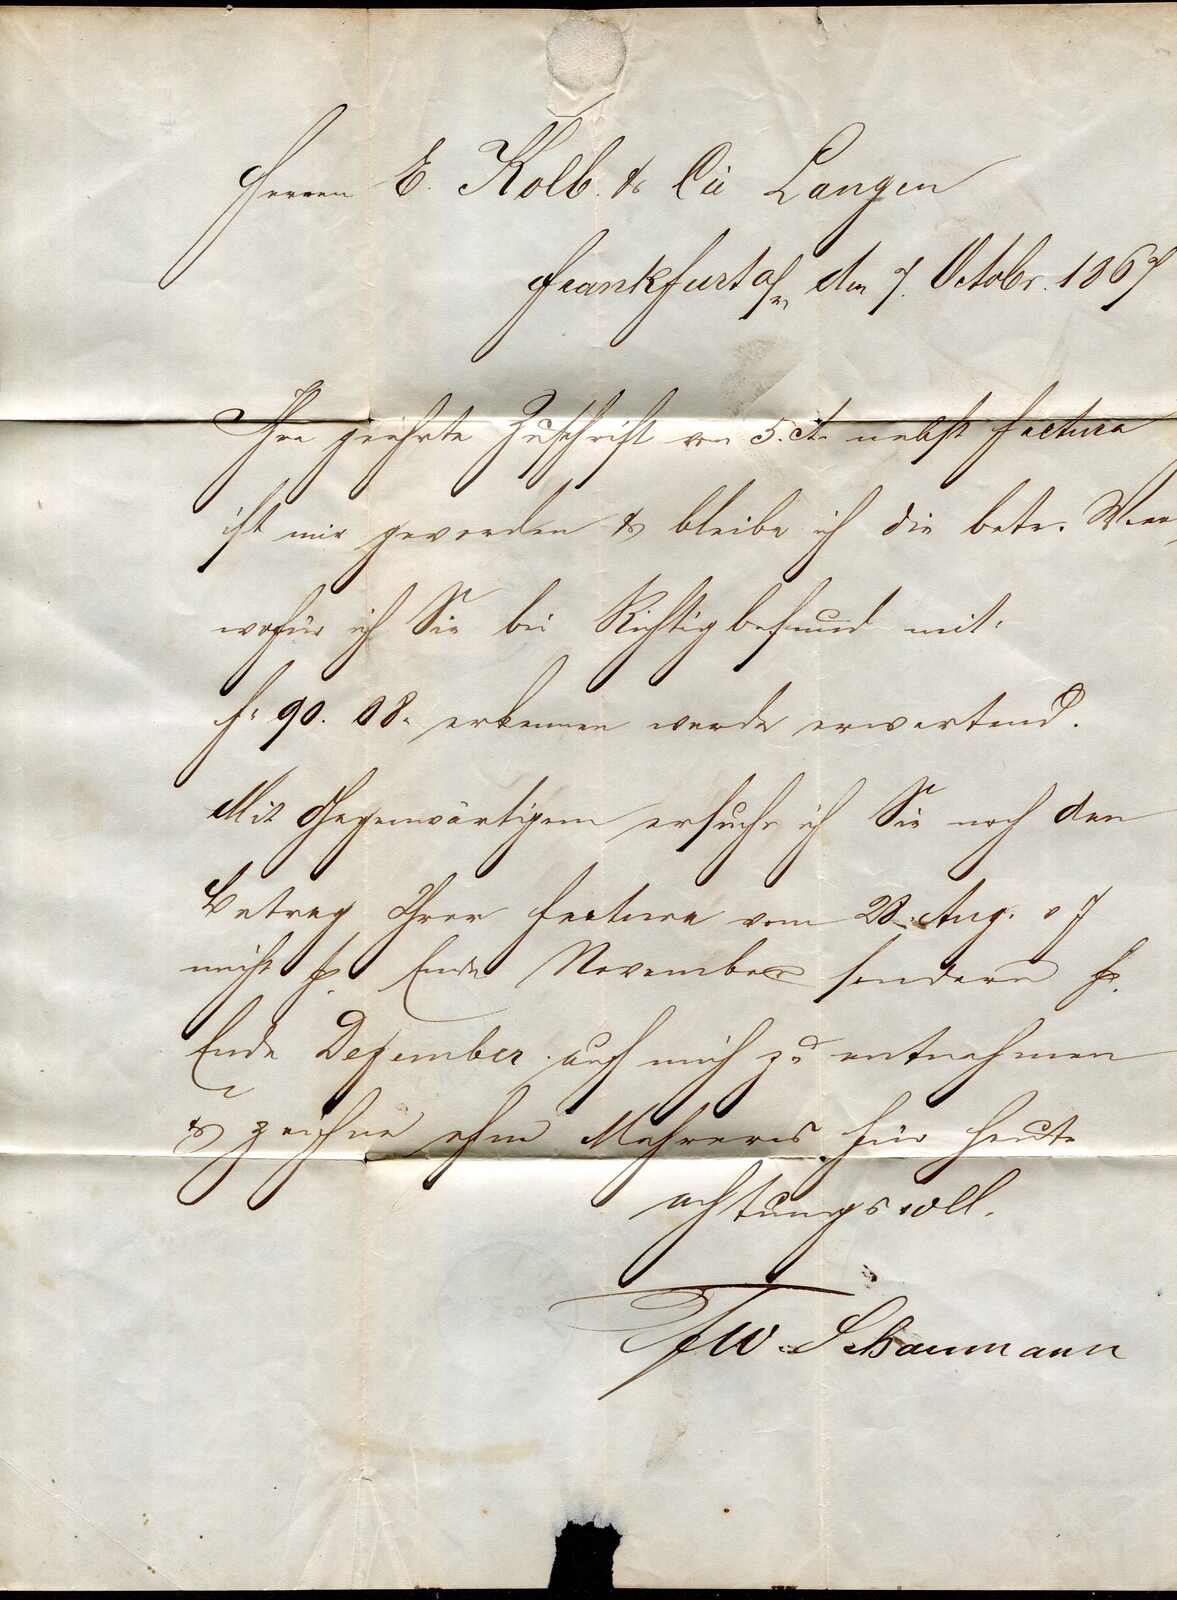 Herren E. Kolb & Cie Langen
Frankfurt a/m den 7. Octobr. 1867
Ihre geehrte Zuschrift vom 5. ct. nebst Factura
ist mir geworden & bleibe ich die betr. Waare,
wofür ich Sie bei Richtigbefund mit:
f. 90. 08. erkennen werde erwartend.
Mit Gegenwärtigem ersuche ich Sie noch den
Betrag Ihrer Factura vom 28. Aug.
nicht pr. Ende November sondern pr.
Ende Dezember auf mich zu entnehmen
& zeichne ohne Mehreres für heute
achtungsvoll.
FW. Schaumann